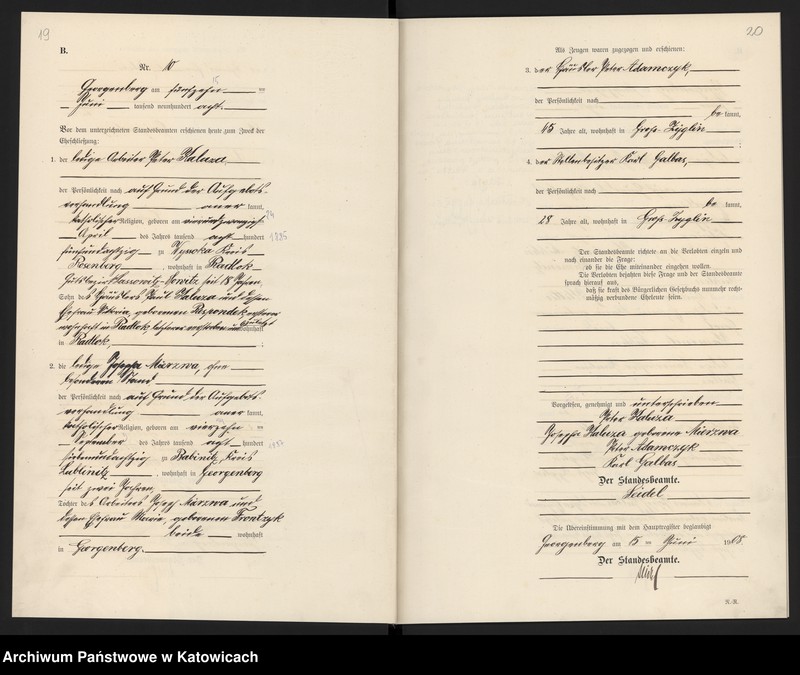 19
B.
Nr. 10
Georgenberg am fünfzehn ten 15
Juni tausend neunhundert acht.
Vor dem unterzeichneten Standesbeamten erschienen heute zum Zweck der
Eheschließung:
1. der ledige Arbeiter Peter Haluza
der Persönlichkeit nach auf Grund der Aufgebots-
verhandlung aner kannt,
katholischer Religion, geboren am vierundzwanzigsten 24
April des Jahres tausend acht hundert
fünfundachtzig zu Wysoka Kreis 1885
Rosenberg, wohnhaft in Radlok
Gutsbezirk seit 18 Jahren
Sohn des Häuslers Paul Haluza und dessen
Ehefrau Viktoria, geborenen Respondek, ersterer
wohnhaft in Radlok, letztere verstorben und wohnhaft
in Radlok. ;
2. die ledige Josepha Marzwa, ohne
besonderen Stand
der Persönlichkeit nach auf Grund der Aufgebots-
verhandlung aner kannt,
katholischer Religion, geboren am vierzehn ten
September des Jahres tausend acht hundert
siebenundachtzig zu Babinitz, Kreis 1887
Lublinitz, wohnhaft in Georgenberg
seit zwei Jahren,
Tochter des Arbeiters Josef Marzwa und
dessen Ehefrau Marie, geborenen Frontzyk
beide wohnhaft
in Georgenberg.
20
Als Zeugen waren zugezogen und erschienen:
3. der Häusler Peter Adamczyk,
der Persönlichkeit nach
be kannt,
65 Jahre alt, wohnhaft in Groß-Zyglin
;
4. der Stellenbesitzer Karl Galbas,
der Persönlichkeit nach
be kannt,
28 Jahre alt, wohnhaft in Groß-Zyglin
Der Standesbeamte richtete an die Verlobten einzeln und
nach einander die Frage:
ob sie die Ehe miteinander eingehen wollen.
Die Verlobten bejahten diese Frage und der Standesbeamte
sprach hierauf aus,
daß sie kraft des Bürgerlichen Gesetzbuchs nunmehr recht-
mäßig verbundene Eheleute seien.
Vorgelesen, genehmigt und unterschrieben
Peter Haluza
Josepha Haluza geborene Marzwa
Peter Adamczyk
Karl Galbas
Der Standesbeamte.
Seidel
Die Übereinstimmung mit dem Hauptregister beglaubigt
Georgenberg am 15 ten Juni 1908
Der Standesbeamte.
R.-R.
Archiwum Państwowe w Katowicach